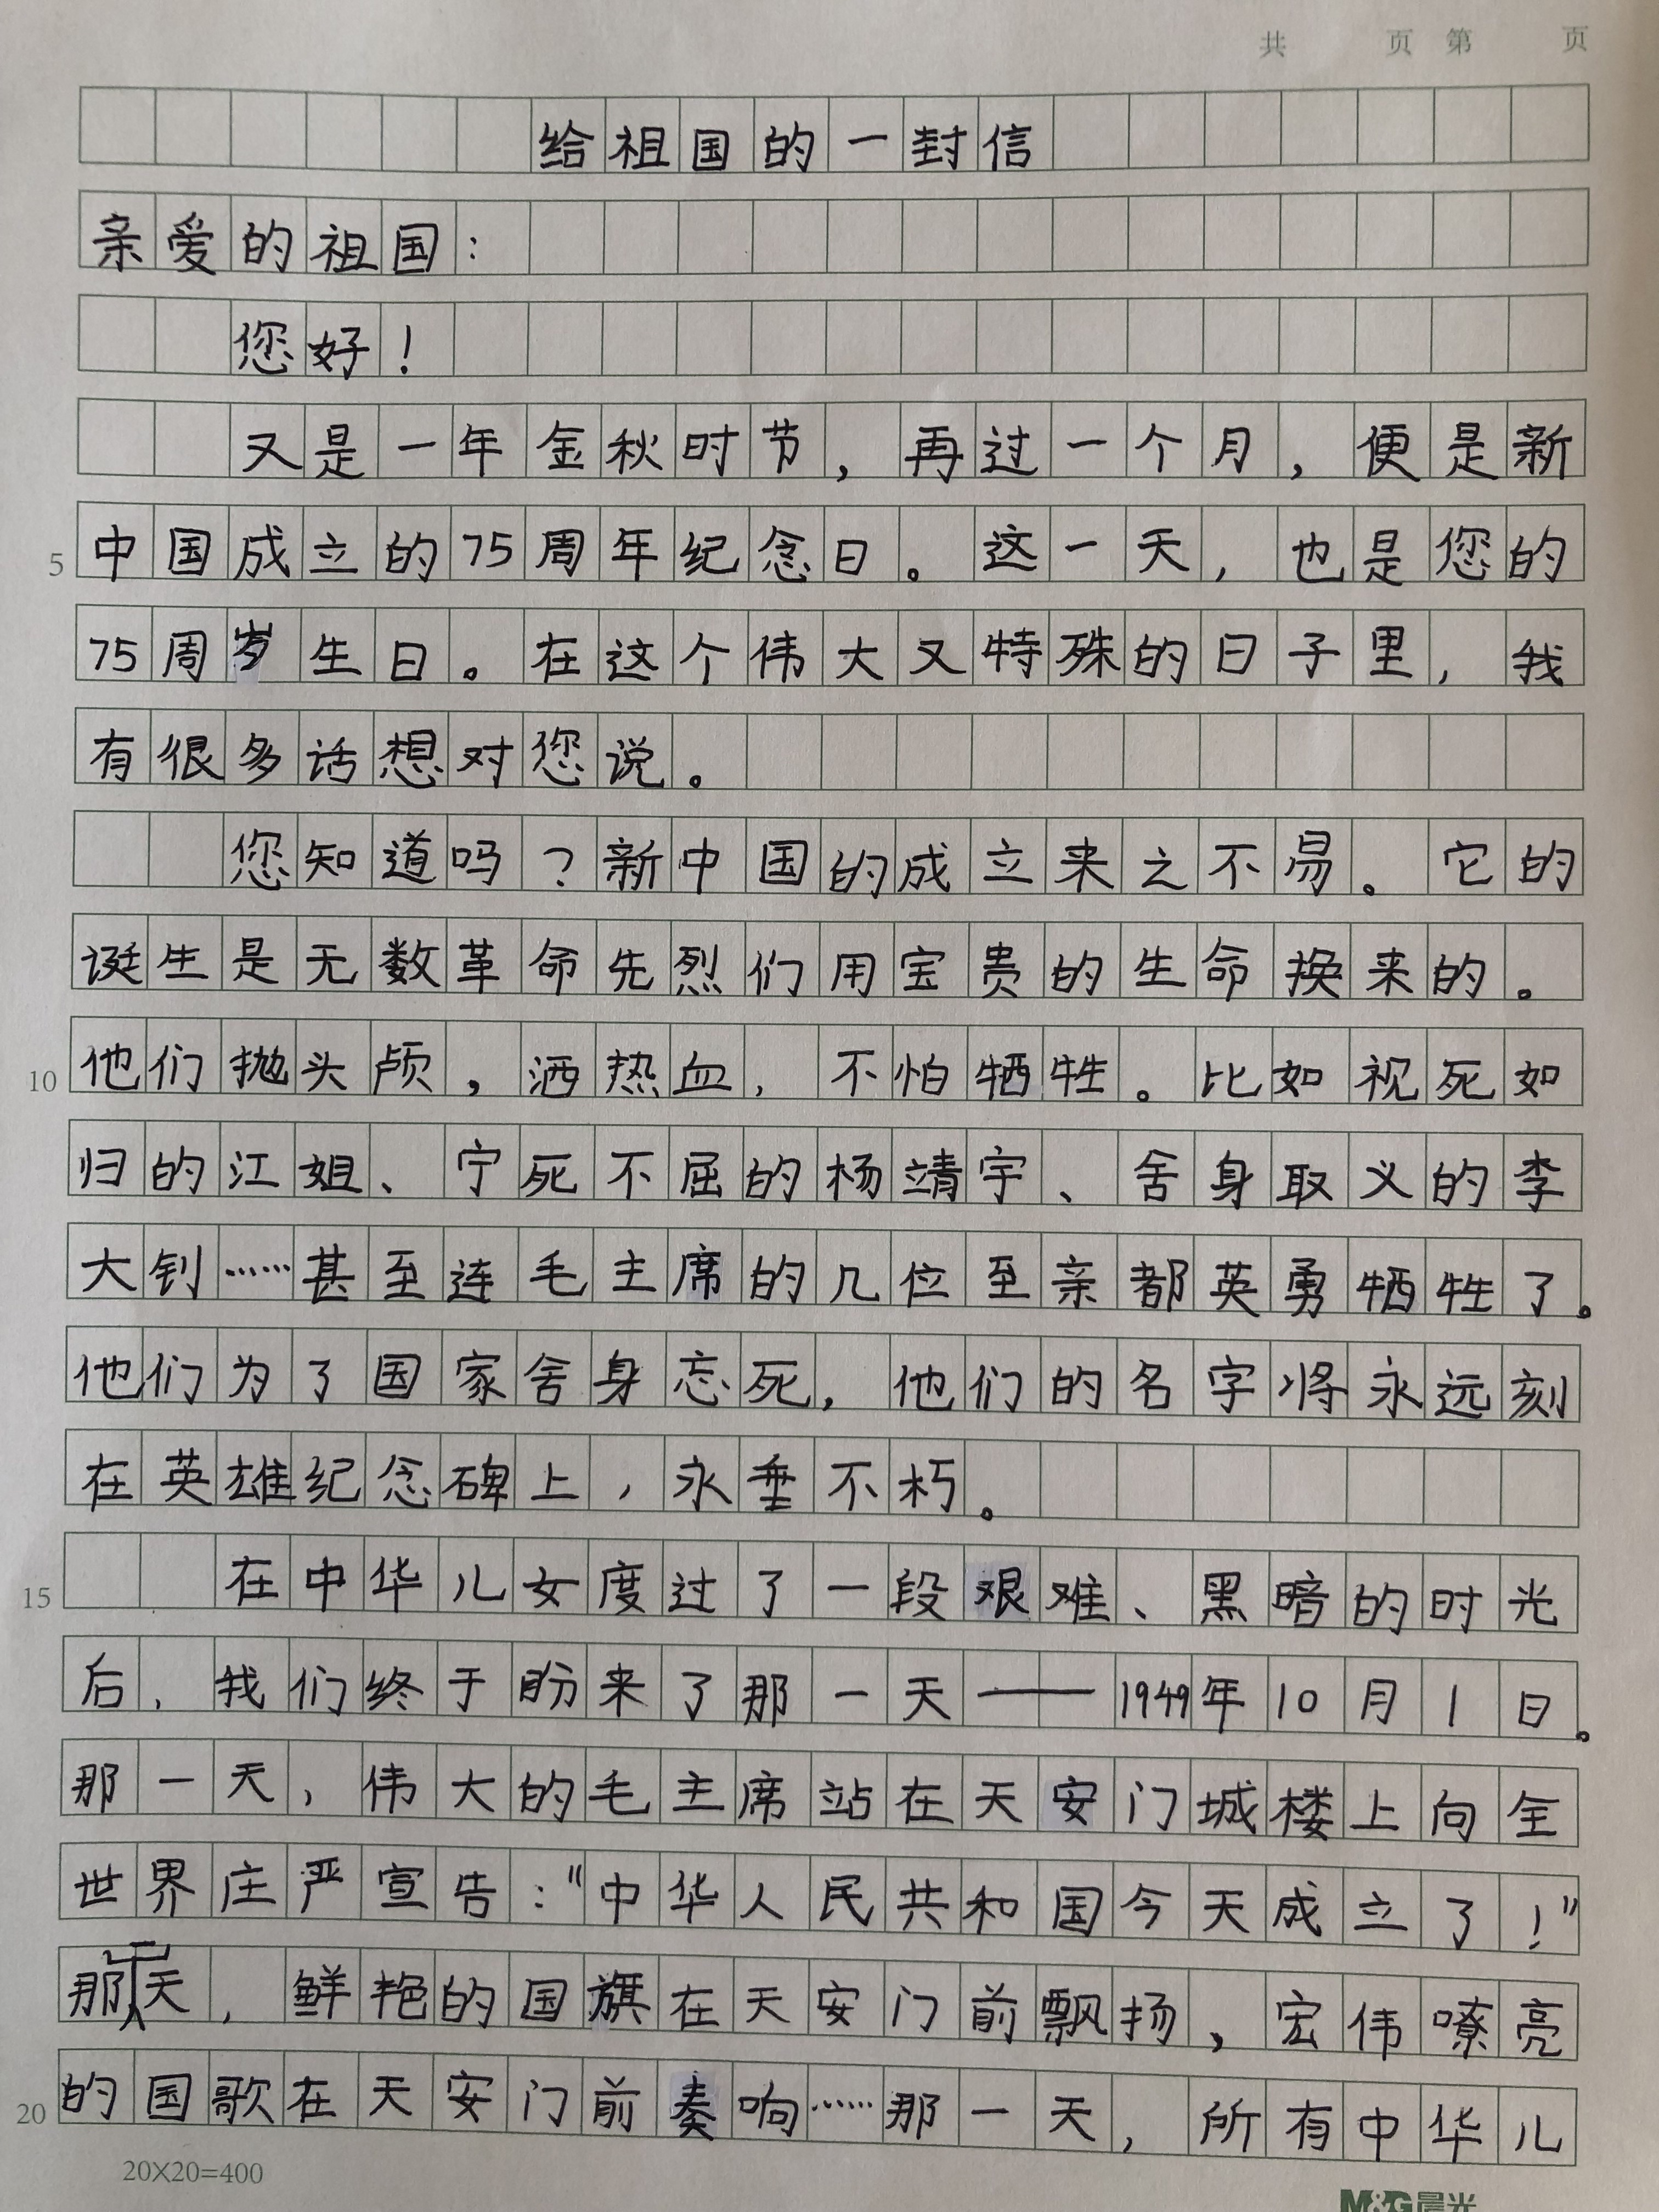 共 页 第 页
给祖国的一封信
亲爱的祖国：
您好！
又是一年金秋时节，再过一个月，便是新
5 中国成立的75周年纪念日。这一天，也是您的
75周岁生日。在这个伟大又特殊的日子里，我
有很多话想对您说。
您知道吗？新中国的成立来之不易。它的
诞生是无数革命先烈们用宝贵的生命换来的。
10 他们抛头颅，洒热血，不怕牺牲。比如视死如
归的江姐、宁死不屈的杨靖宇、舍身取义的李
大钊……甚至连毛主席的几位至亲都英勇牺牲了。
他们为了国家舍身忘死，他们的名字将永远刻
在英雄纪念碑上，永垂不朽。
15 在中华儿女度过了一段艰难、黑暗的时光
后，我们终于盼来了那一天——1949年10月1日。
那一天，伟大的毛主席站在天安门城楼上向全
世界庄严宣告：“中华人民共和国今天成立了！”
那一天，鲜艳的国旗在天安门前飘扬，宏伟嘹亮
20 的国歌在天安门前奏响……那一天，所有中华儿
20X20=400
M&G晨光